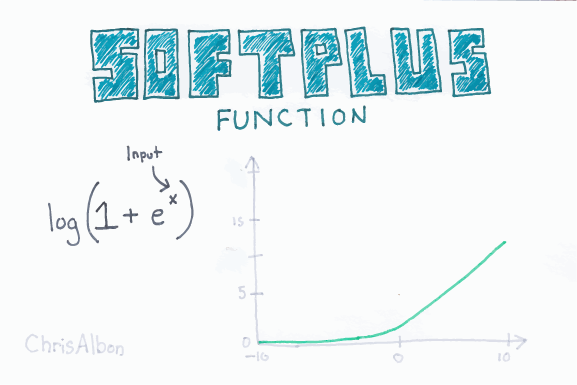 SOFTPLUS
FUNCTION
Input
log(1 + eˣ)
15
5
0
-10
0
10
ChrisAlbon